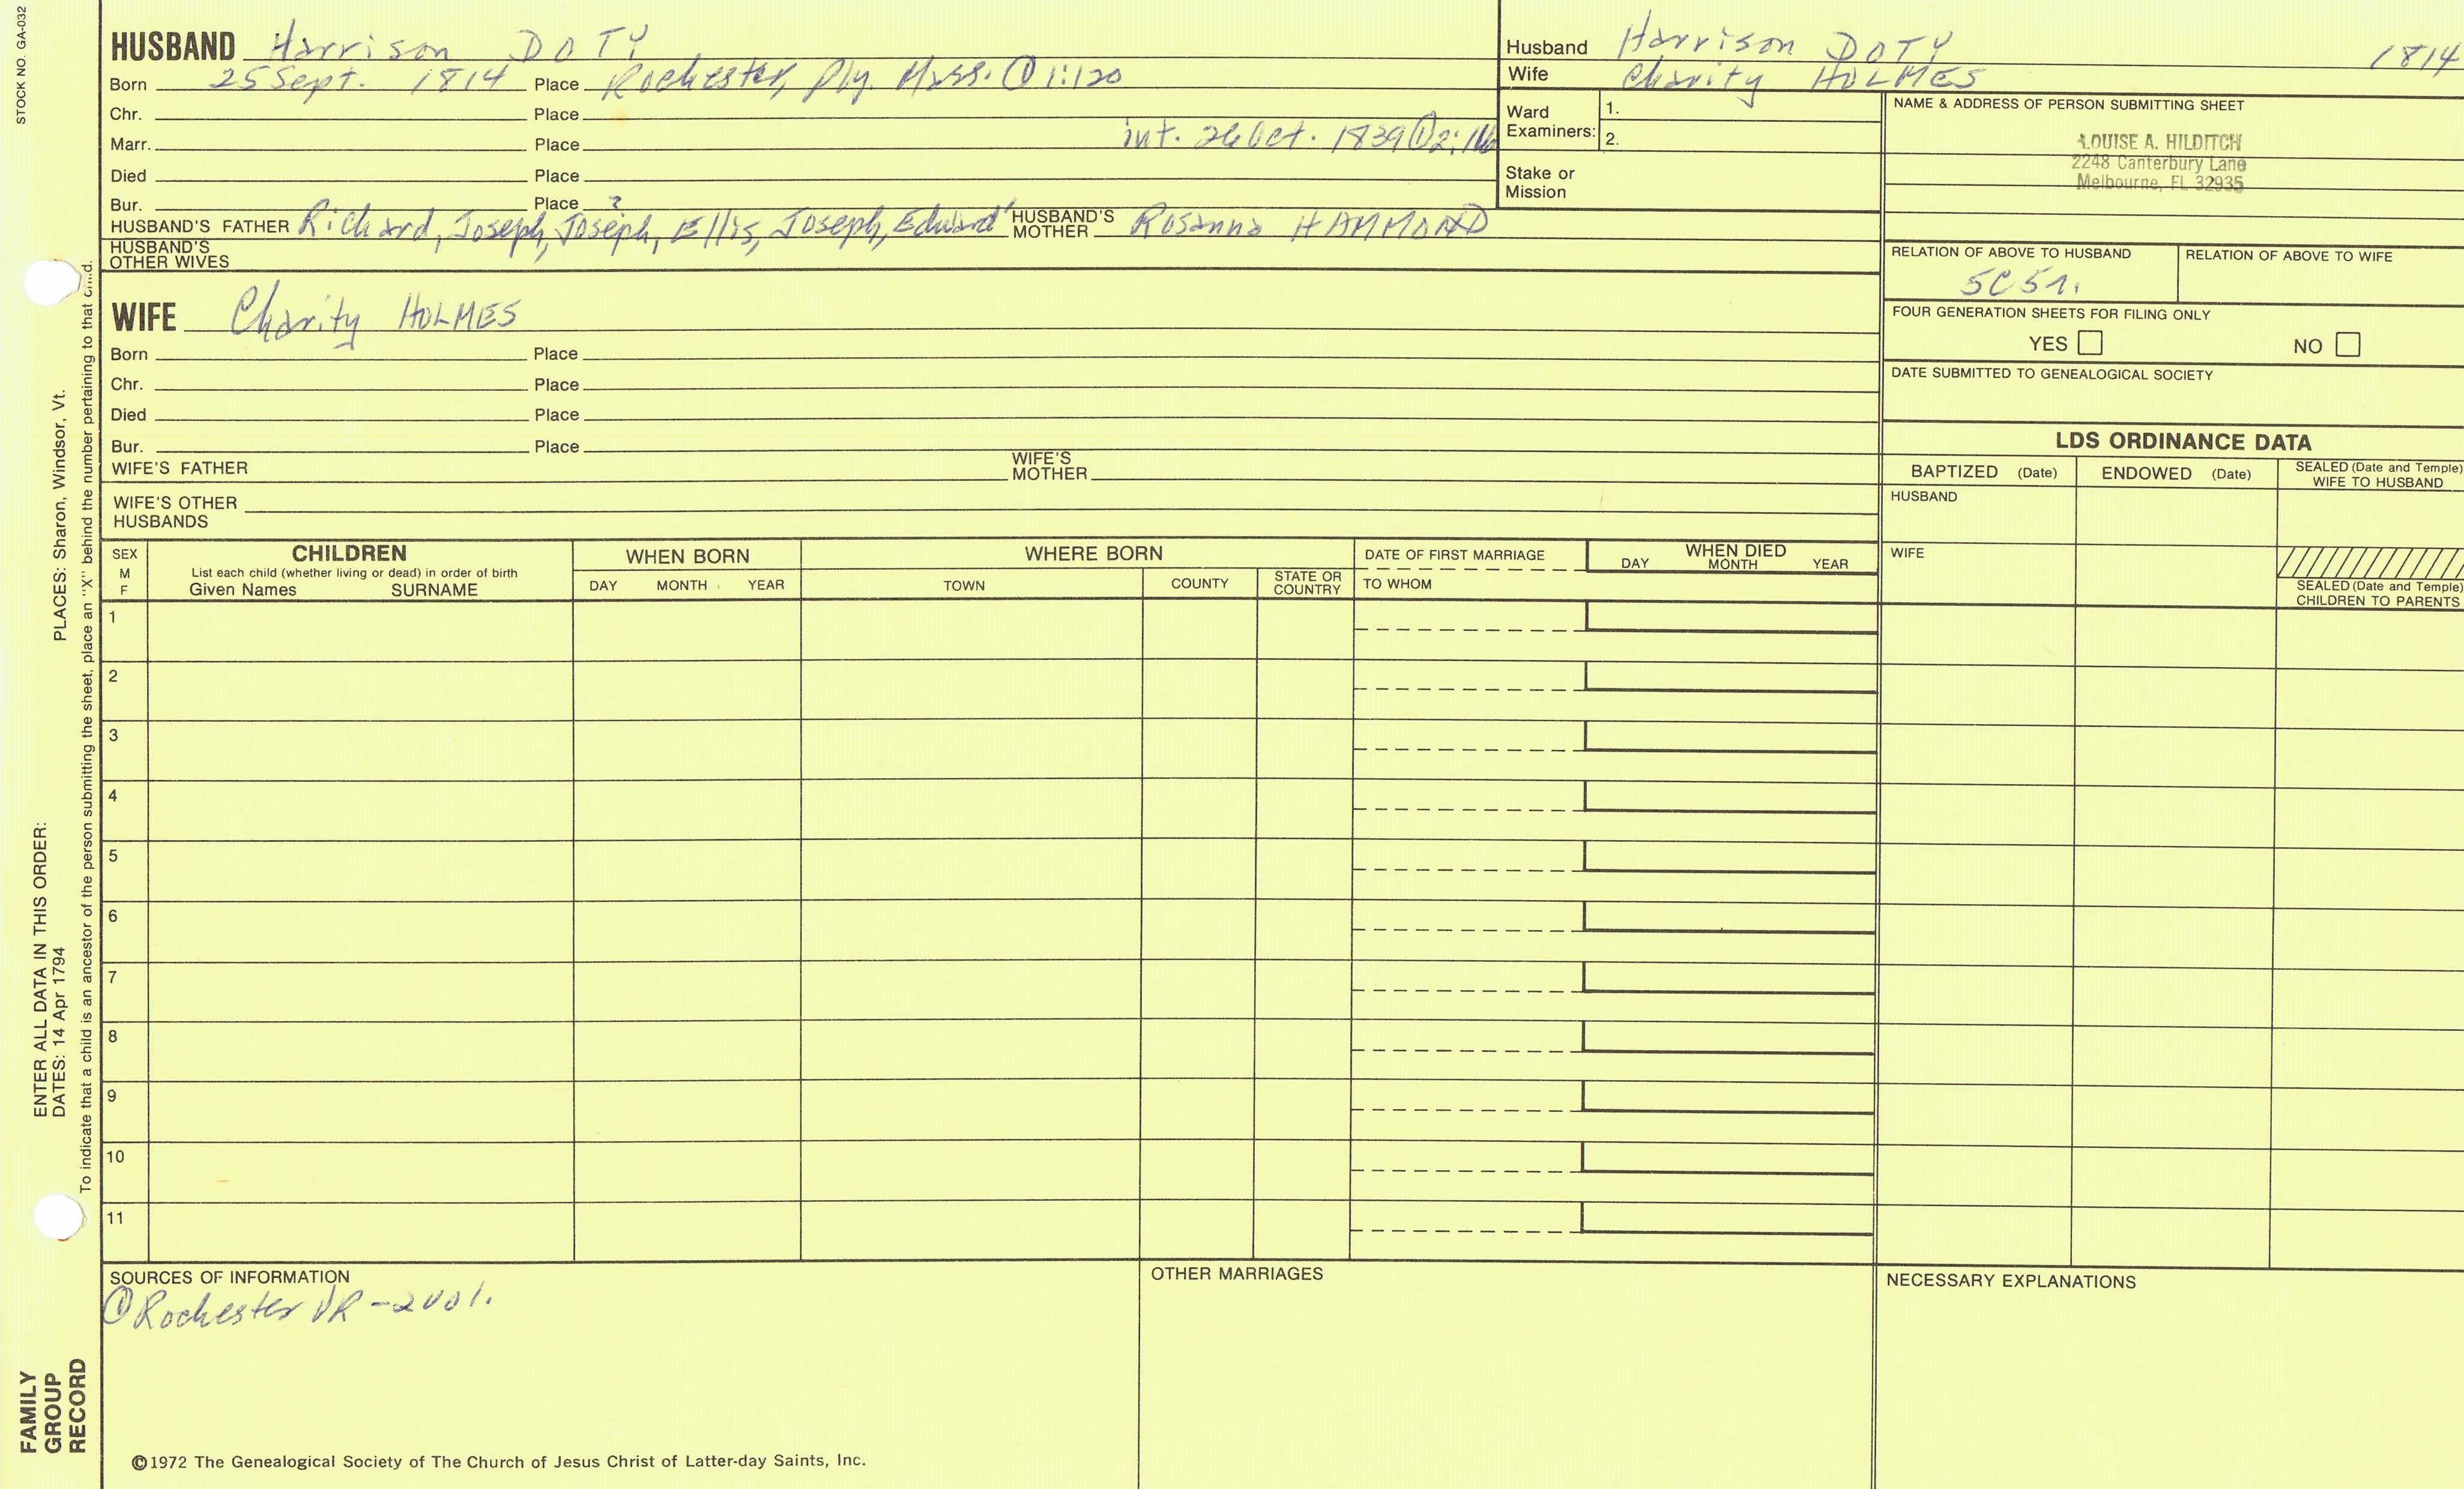 STOCK NO. GA-032
HUSBAND Harrison DOTY
Born 25 Sept. 1814 Place Rochester, Ply. Mass. ① 1:120
Chr. Place
Marr. Place int. 26 Oct. 1839 ① 2:116
Died Place
Bur. Place ?
HUSBAND'S FATHER Richard, Joseph, Joseph, Ellis, Joseph, Edward' HUSBAND'S MOTHER Rosanna HAMMOND
HUSBAND'S OTHER WIVES
Husband Harrison DOTY 1814
Wife Charity HOLMES
Ward Examiners: 1.
2.
Stake or Mission
NAME & ADDRESS OF PERSON SUBMITTING SHEET
LOUISE A. HILDITCH
2248 Canterbury Lane
Melbourne, FL 32935
RELATION OF ABOVE TO HUSBAND RELATION OF ABOVE TO WIFE
5C5r.
FOUR GENERATION SHEETS FOR FILING ONLY
YES NO
DATE SUBMITTED TO GENEALOGICAL SOCIETY
WIFE Charity HOLMES
Born Place
Chr. Place
Died Place
Bur. Place
WIFE'S FATHER WIFE'S MOTHER
WIFE'S OTHER HUSBANDS
LDS ORDINANCE DATA
BAPTIZED (Date) ENDOWED (Date) SEALED (Date and Temple) WIFE TO HUSBAND
HUSBAND
WIFE
SEALED (Date and Temple) CHILDREN TO PARENTS
SEX M F
CHILDREN
List each child (whether living or dead) in order of birth
Given Names SURNAME
WHEN BORN
DAY MONTH YEAR
WHERE BORN
TOWN COUNTY STATE OR COUNTRY
DATE OF FIRST MARRIAGE
TO WHOM
WHEN DIED
DAY MONTH YEAR
1
2
3
4
5
6
7
8
9
10
11
SOURCES OF INFORMATION
① Rochester VR - 2 vol.
OTHER MARRIAGES
NECESSARY EXPLANATIONS
©1972 The Genealogical Society of The Church of Jesus Christ of Latter-day Saints, Inc.
FAMILY GROUP RECORD
ENTER ALL DATA IN THIS ORDER:
DATES: 14 Apr 1794 PLACES: Sharon, Windsor, Vt.
To indicate that a child is an ancestor of the person submitting the sheet, place an "X" behind the number pertaining to that child.